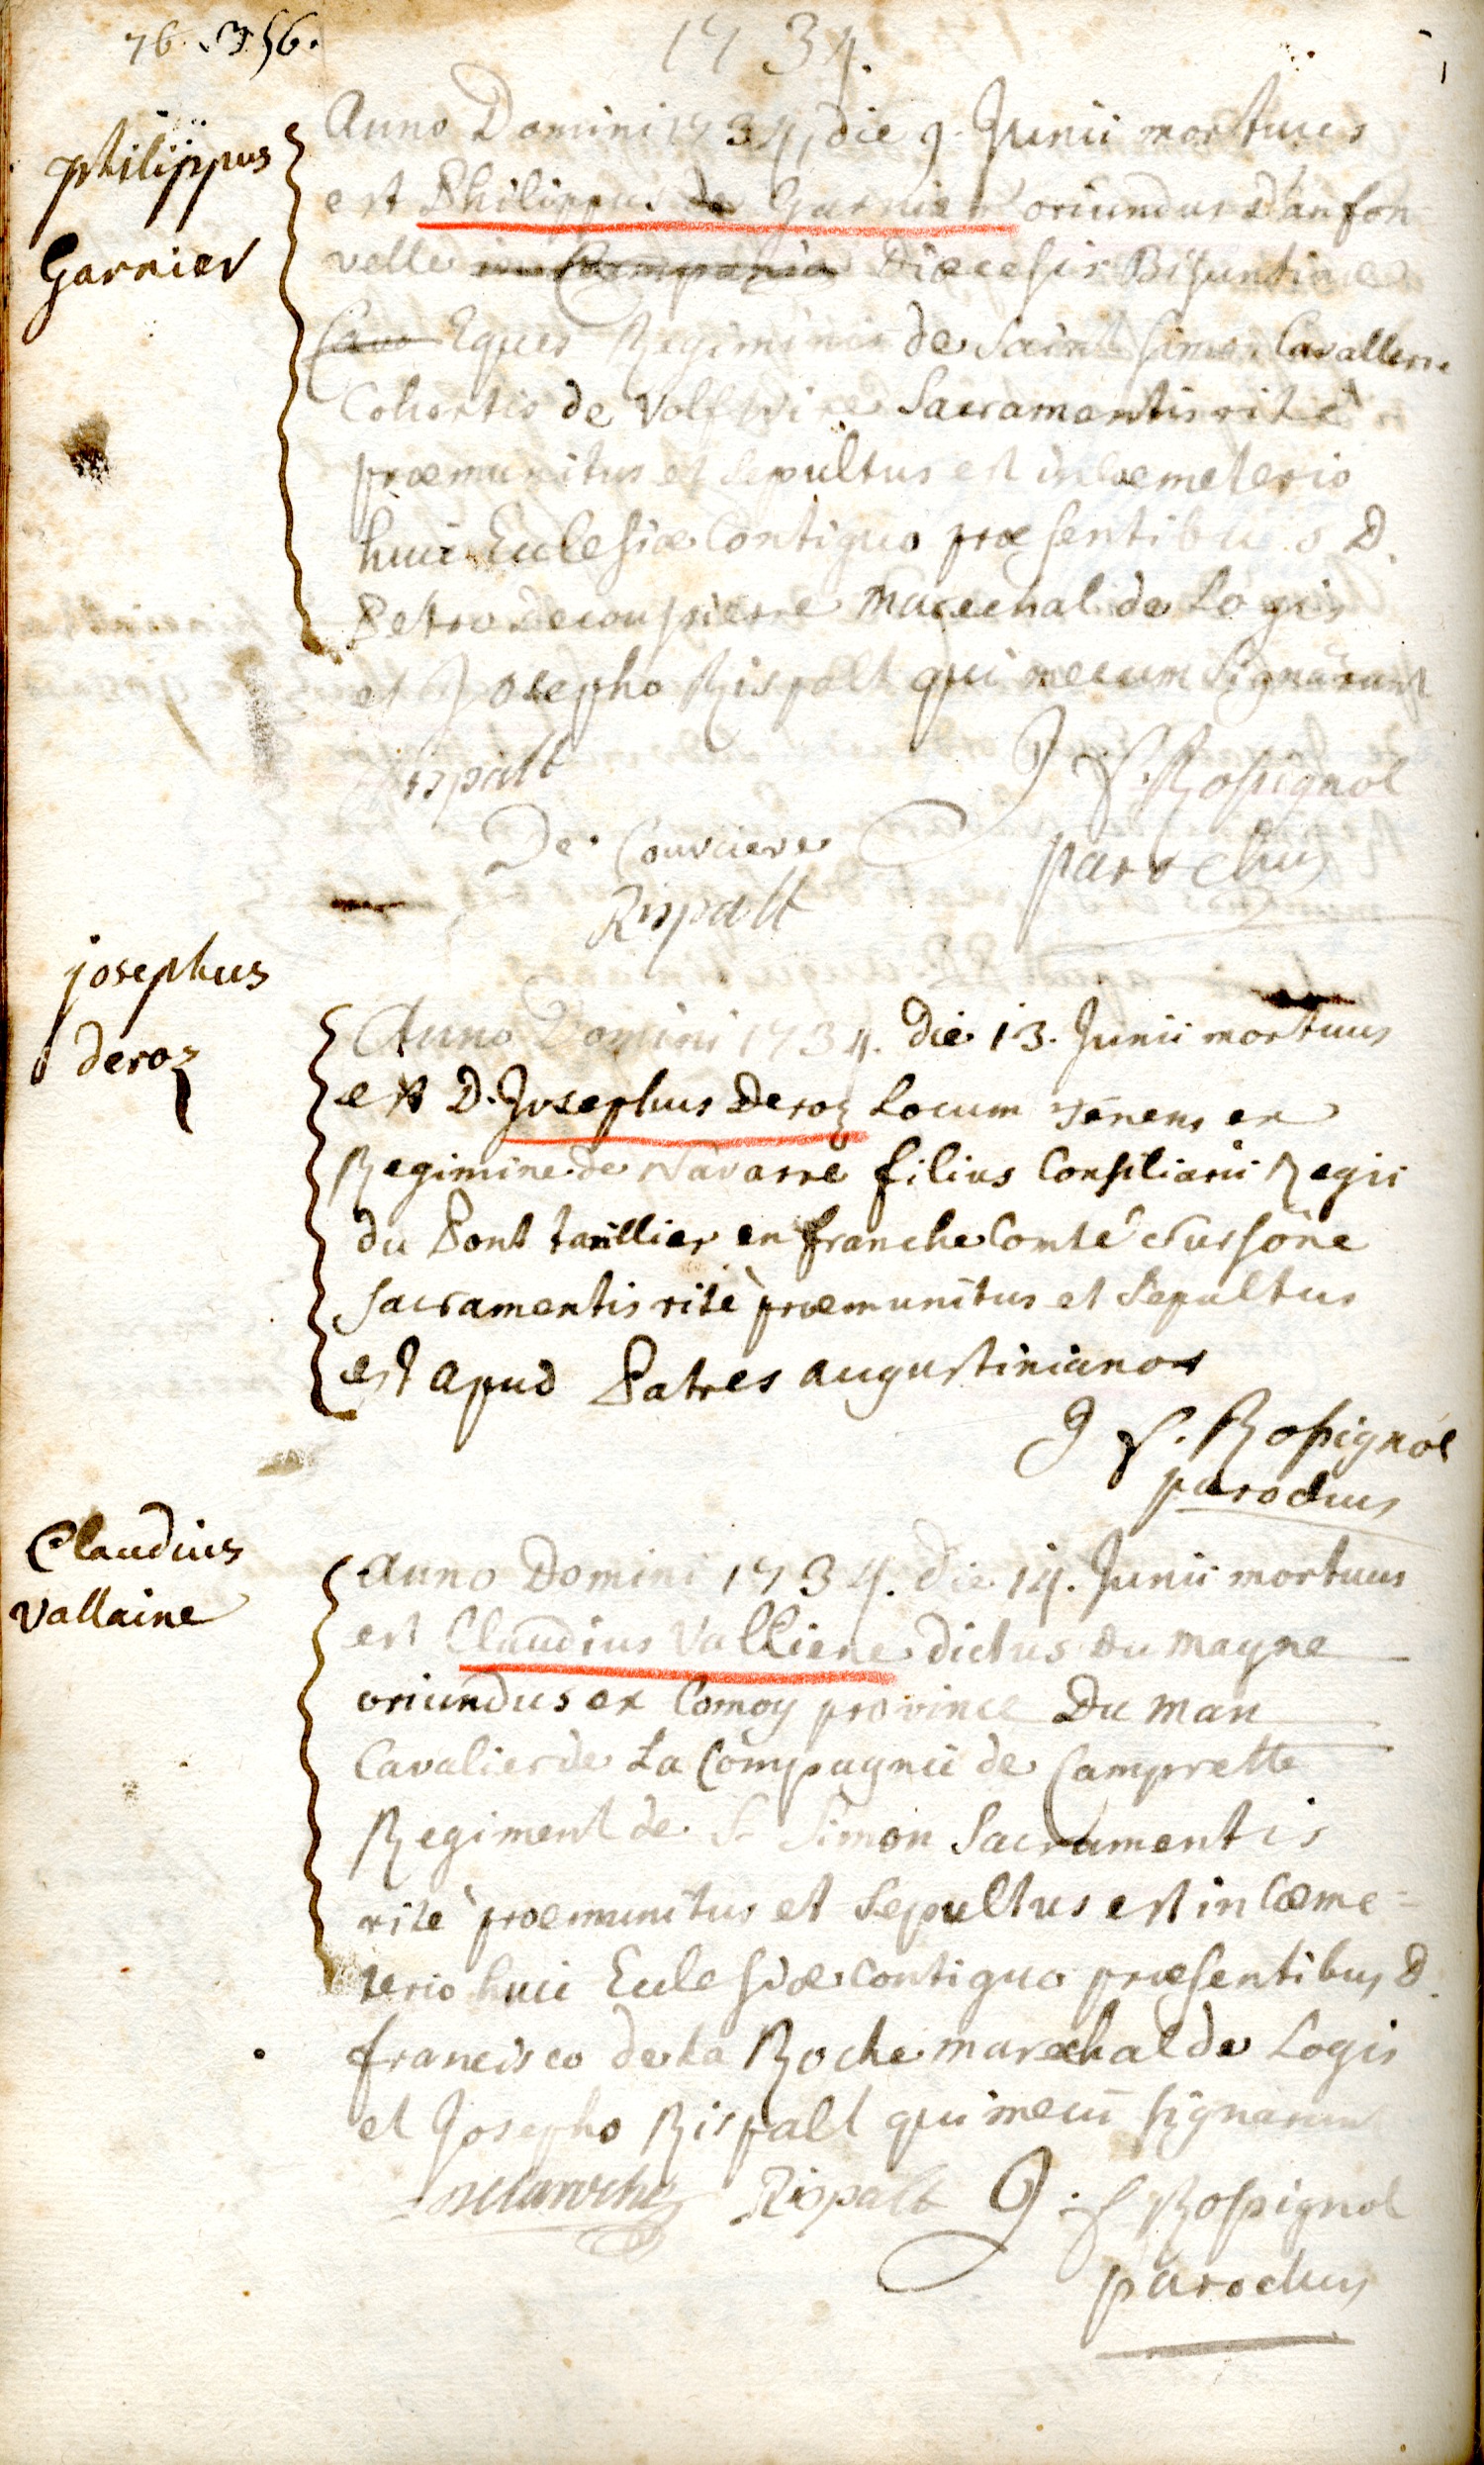 76. 356.
1734.
philippus
Garnier
Anno Domini 1734, die 9. Junii mortuus
est Philippus de Garnier oriundus d'anfon
velle in Campania Diœcesis Bisuntinæ
Eques Regiminis de Saint Simon Cavallerie
Cohortis de Volfwire Sacramentis ritè
præmunitus et Sepultus est in Cœmeterio
huic Ecclesiæ Contiguo præsentibus D.
Petro Marechal de Logis
et Josepho Rispalt qui mecum Signarunt
Rispalt
J F. Rossignol
De Courciere
parochus
Rispalt
josephus
deroz
Anno Domini 1734. die 13. Junii mortuus
est D. Josephus Deroz Locum Tenens ex
Regimine de Navarre filius Consiliarii Regii
du Pont tarillier en franche Comté Sursône
Sacramentis ritè præmunitus et Sepultus
est apud Patres augustinianos
J F. Rossignol
parochus
Claudius
Vallaine
Anno Domini 1734. die 14. Junii mortuus
est Claudius Valliene dictus Du Mayne
oriundus ex Comoy province Du Man
Cavalier de La Compagnie de Camprette
Regiment de St Simon Sacramentis
ritè præmunitus et Sepultus est in Cœme=
terio huic Ecclesiæ contiguo præsentibus D.
francisco de la Roche marechal de Logis
et Josepho Rispalt qui mecū signarunt
Delaroche Rispalt J. F Rossignol
parochus